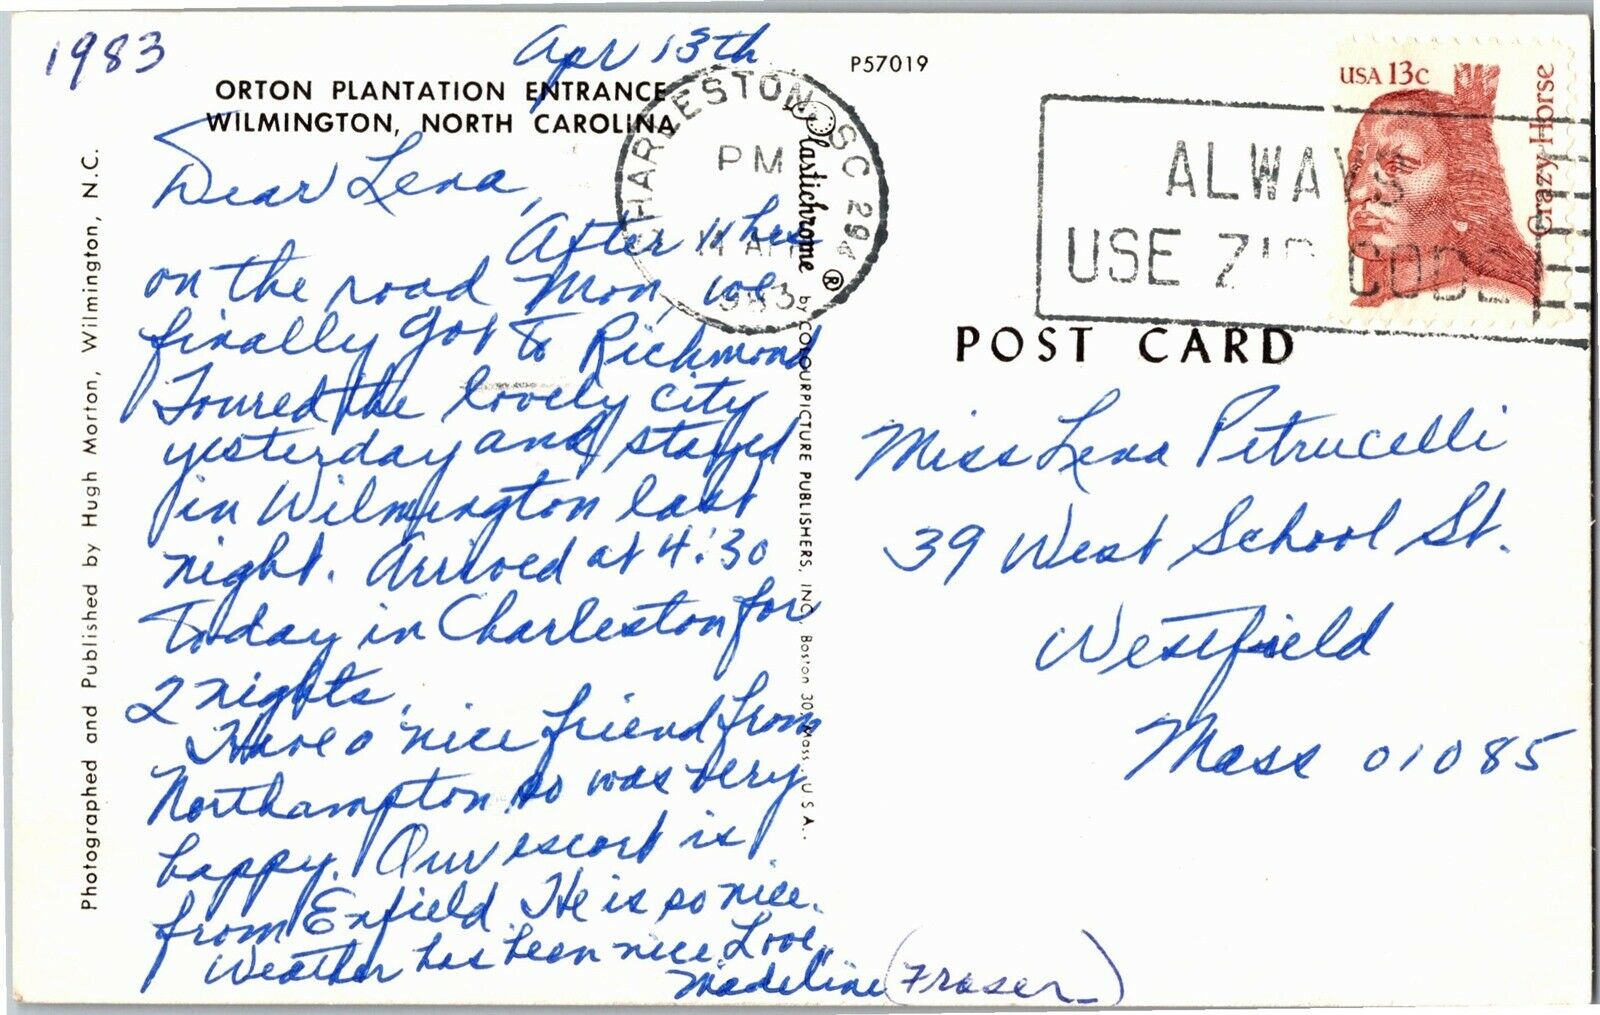 1983
Apr 13th
ORTON PLANTATION ENTRANCE
WILMINGTON, NORTH CAROLINA
P57019
Dear Lena,
After 11 hrs
on the road Mon, we
finally got to Richmond
Toured the lovely city
yesterday and stayed
in Wilmington last
night. Arrived at 4:30
today in Charleston for
2 nights.
Have a nice friend from
Northampton so was very
happy. Our escort is
from Enfield. He is so nice.
Weather has been nice Love,
Madeline (Fraser)
Photographed and Published by Hugh Morton, Wilmington, N.C.
Plastichrome ® by COLOURPICTURE PUBLISHERS, INC., Boston 30, Mass., U.S.A.
CHARLESTON, SC 294
PM
14 APR
1983
ALWAYS
USE ZIP CODE
USA 13c
Crazy Horse
POST CARD
Miss Lena Petrucelli
39 West School St.
Westfield
Mass 01085